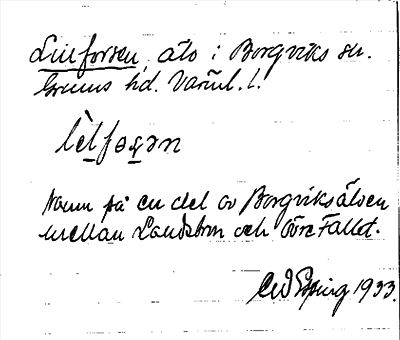 Lillforsen, älv i Borgviks sn.
Grums hd. Värml. l.
lìtfoṣən
Namn på en del av Borgviksälven
mellan Landsbron och Övre Fallet.
1933.